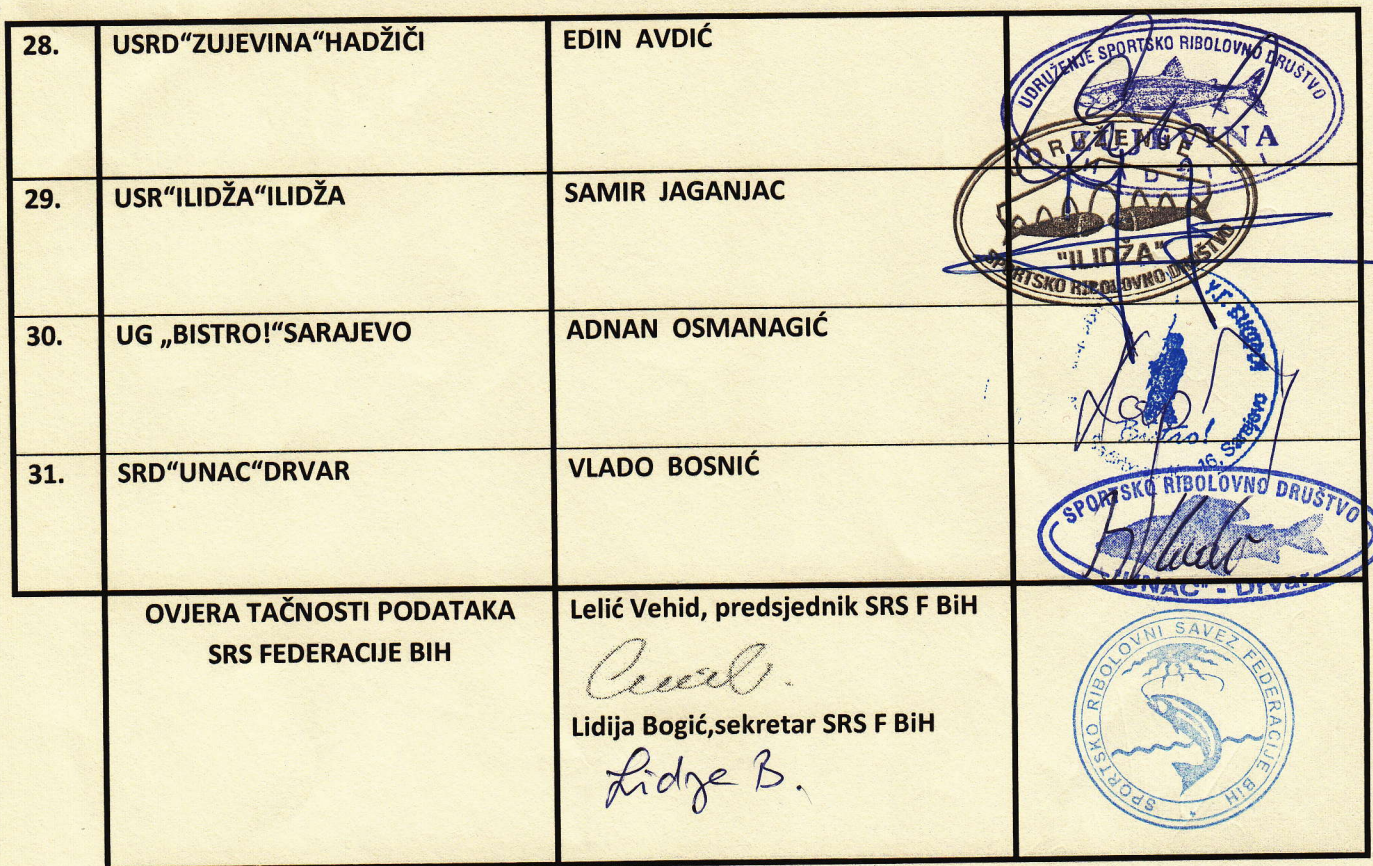 28. USRD“ZUJEVINA“HADŽIČI EDIN AVDIĆ
UDRUŽENJE SPORTSKO RIBOLOVNO DRUŠTVO
ZUJEVINA
HADŽIĆI
29. USR“ILIDŽA“ILIDŽA SAMIR JAGANJAC
UDRUŽENJE
"ILIDŽA"
SPORTSKO RIBOLOVNO DRUŠTVO
30. UG „BISTRO!“SARAJEVO ADNAN OSMANAGIĆ
Bistro!
16, Sarajevo
31. SRD“UNAC“DRVAR VLADO BOSNIĆ
SPORTSKO RIBOLOVNO DRUŠTVO
"UNAC" - Drvar
OVJERA TAČNOSTI PODATAKA
SRS FEDERACIJE BIH
Lelić Vehid, predsjednik SRS F BiH
Lidija Bogić,sekretar SRS F BiH
Lidija B.
SPORTSKO RIBOLOVNI SAVEZ FEDERACIJE BiH